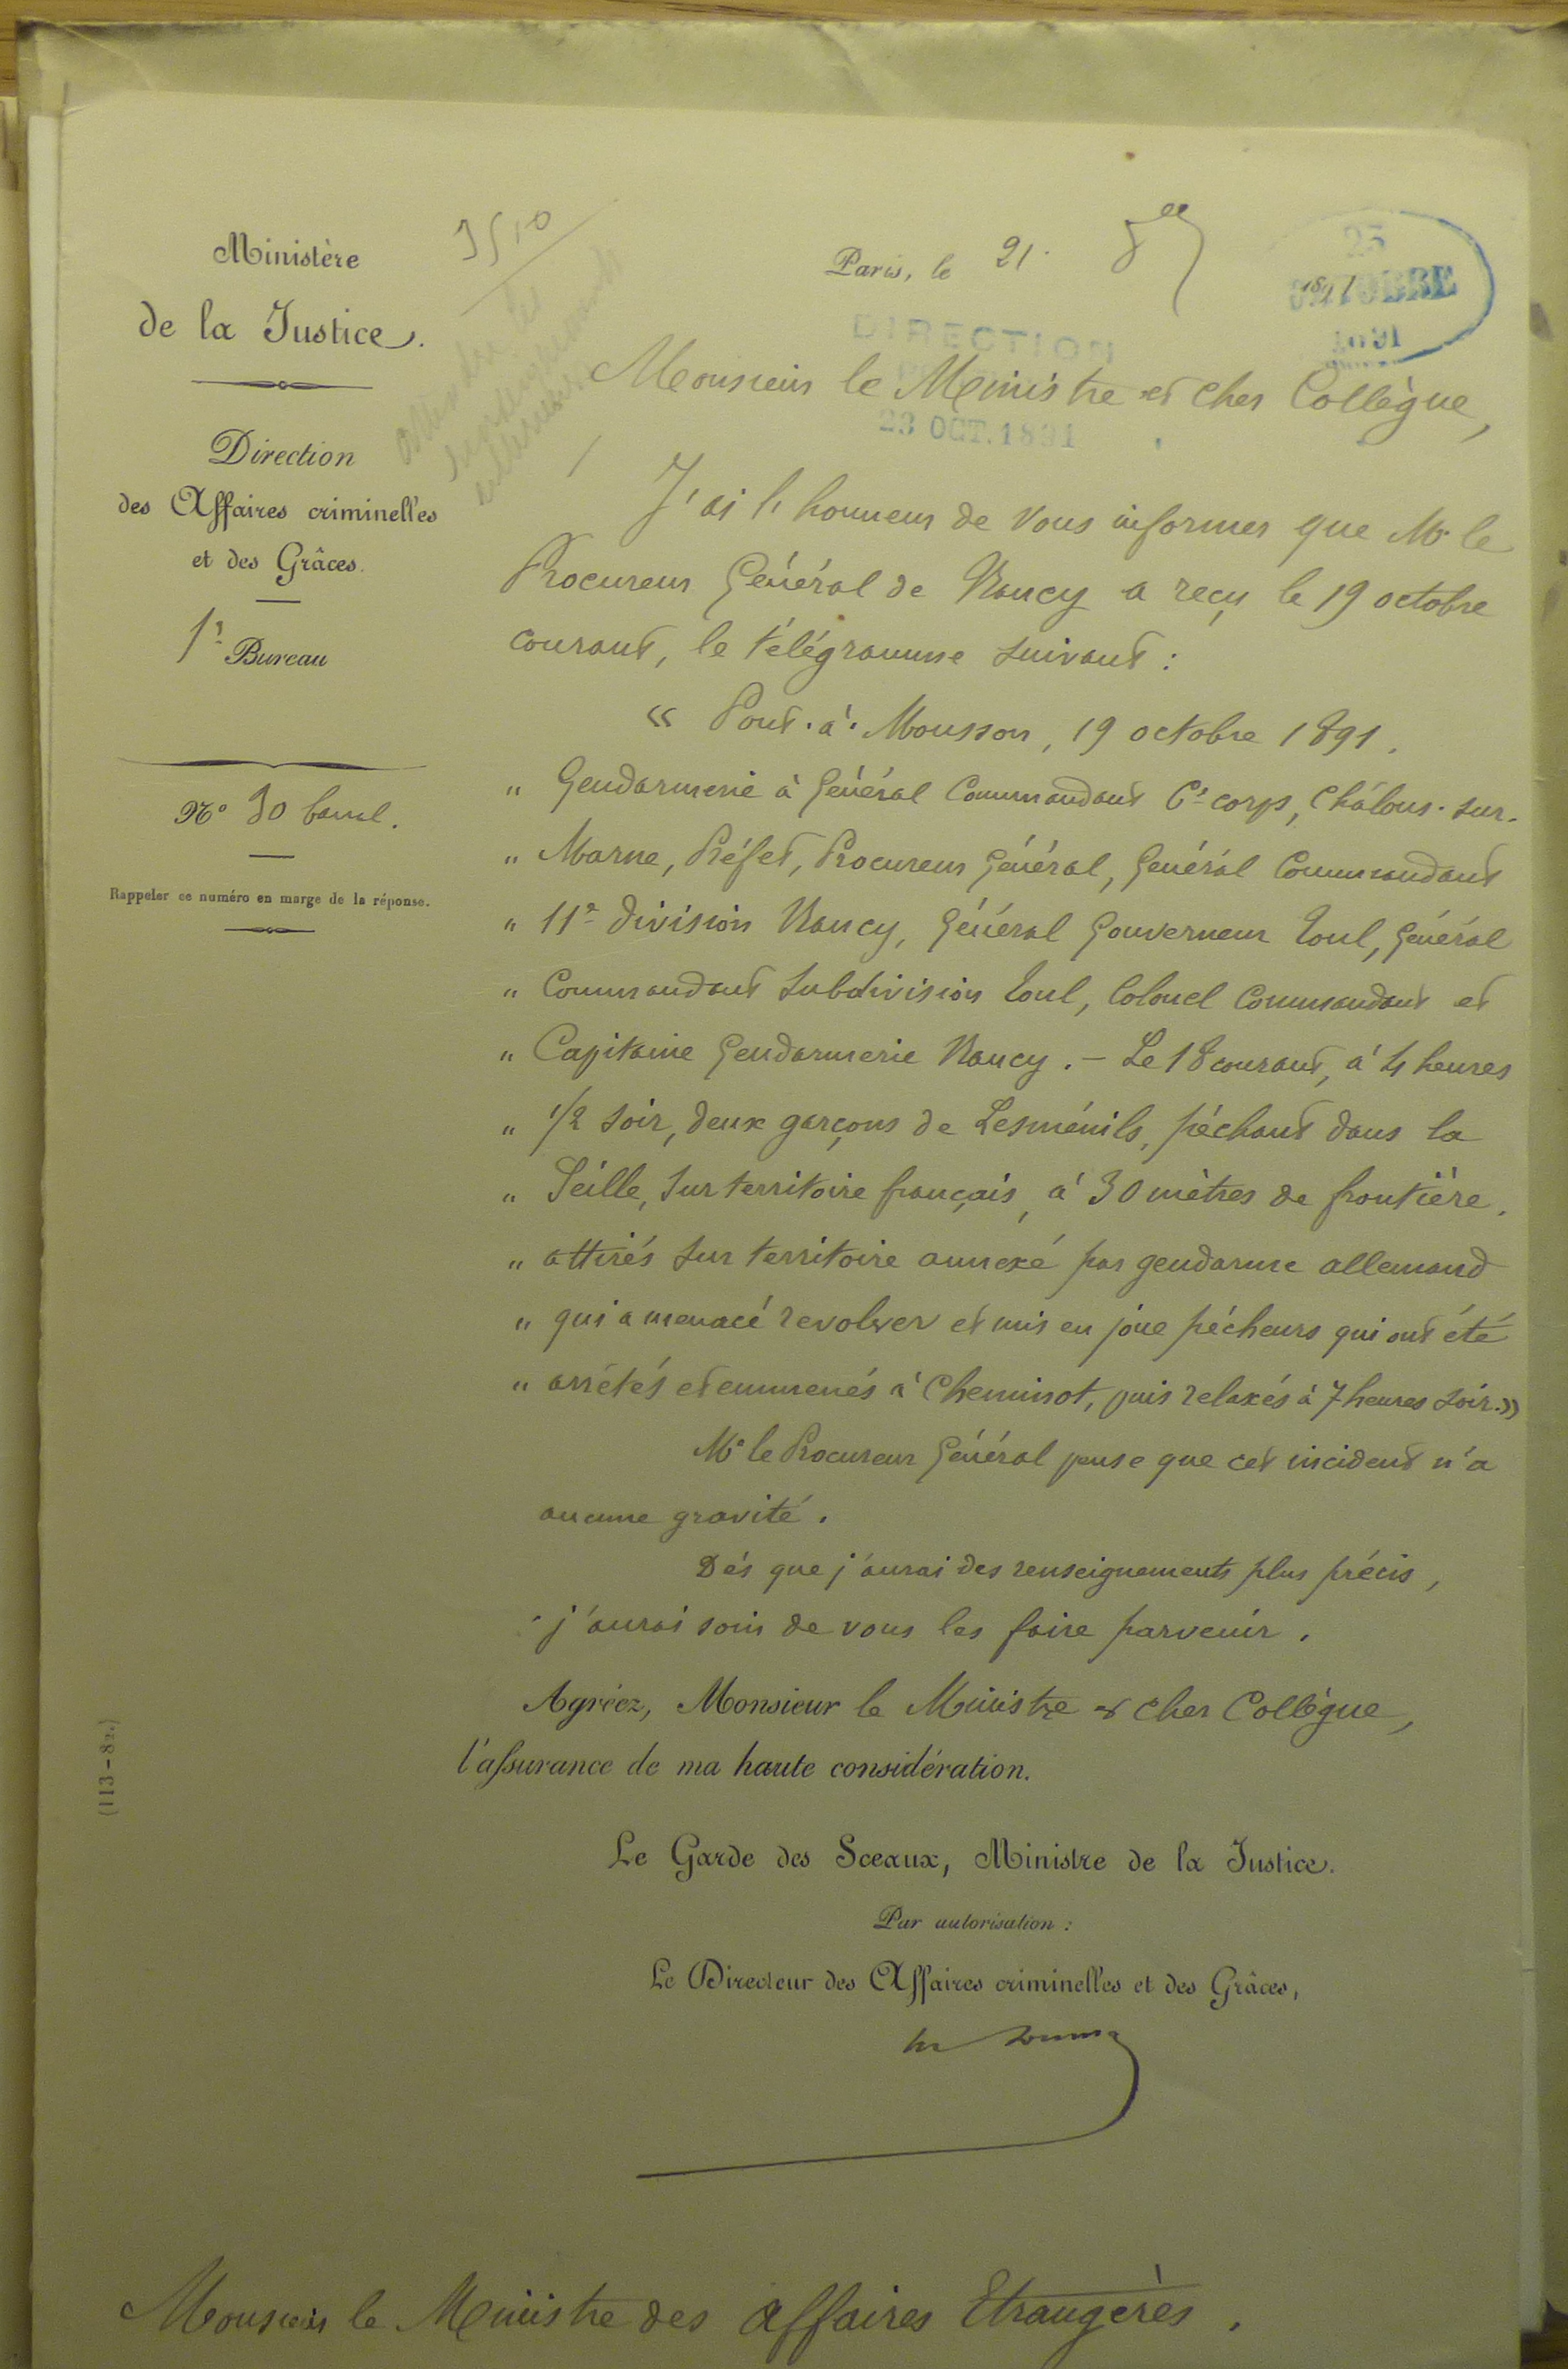 Ministère
de la Justice.
Direction
des Affaires criminelles
et des Grâces.
1er Bureau
N° 30 banal.
Rappeler ce numéro en marge de la réponse.
(113-82.)
3510
attendre les
renseignements
ultérieurs
Paris, le 21 8bre 1891
25
OCTOBRE
1891
DIRECTION
23 OCT. 1891
Monsieur le Ministre et cher Collègue,
J'ai l'honneur de vous informer que Mr le
Procureur Général de Nancy a reçu le 19 octobre
courant, le télégramme suivant :
« Pont-à-Mousson, 19 octobre 1891.
" Gendarmerie à Général Commandant 6e corps, Châlons-sur-
" Marne, Préfet, Procureur Général, Général Commandant
" 11e division Nancy, Général Gouverneur Toul, Général
" Commandant Subdivision Toul, Colonel Commandant et
" Capitaine Gendarmerie Nancy. — Le 18 courant, à 4 heures
" 1/2 soir, deux garçons de Lesménils, pêchant dans la
" Seille, sur territoire français, à 30 mètres de frontière,
" attirés sur territoire annexé par gendarme allemand
" qui a menacé revolver et mis en joue pêcheurs qui ont été
" arrêtés et emmenés à Cheminot, puis relaxés à 7 heures soir. »
Mr le Procureur Général pense que cet incident n'a
aucune gravité.
Dès que j'aurai des renseignements plus précis,
j'aurai soin de vous les faire parvenir.
Agréez, Monsieur le Ministre et cher Collègue,
l'assurance de ma haute considération.
Le Garde des Sceaux, Ministre de la Justice.
Par autorisation :
Le Directeur des Affaires criminelles et des Grâces,
Monsieur le Ministre des Affaires Etrangères.